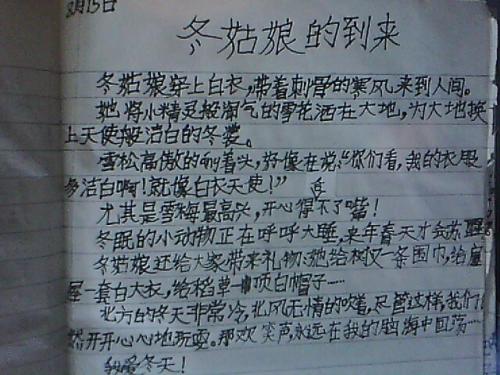 8月15日
冬姑娘的到来
冬姑娘穿上白衣,带着刺骨的寒风来到人间。
她将小精灵般淘气的雪花洒在大地,为大地换
上天使般洁白的冬装。
雪松高傲的昂着头,好像在说:“你们看,我的衣服
多洁白啊!就像白衣天使!”
尤其是雪梅最高兴,开心得合不了嘴!
冬眠的小动物正在呼呼大睡,来年春天才会苏醒
冬姑娘还给大家带来礼物:她给树仅一条围巾,给
一套白大衣,给稻草一顶白帽子……
北方的冬天非常冷,北风无情的吹着,尽管这样,我们
然开开心心地玩耍。那欢笑声,永远在我的脑海中回荡……
我爱冬天!